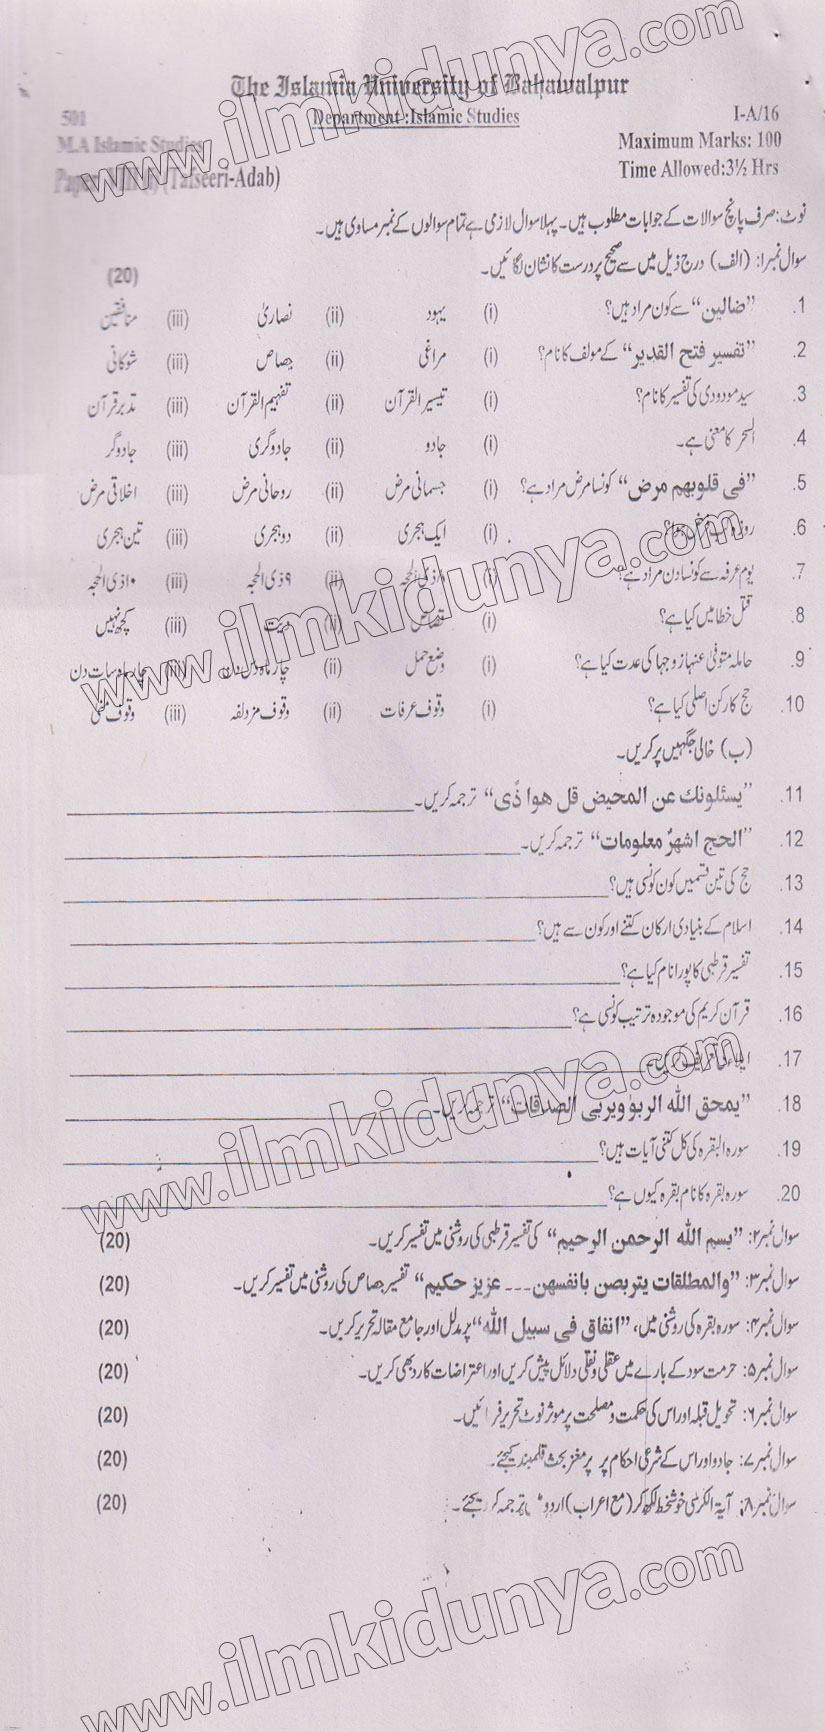 The Islamia University of Bahawalpur
501
Department :Islamic Studies
I-A/16
M.A Islamic Studies
Maximum Marks: 100
Time Allowed:3½ Hrs
(Tafseeri-Adab)
نوٹ: صرف پانچ سوالات کے جوابات مطلوب ہیں۔ پہلا سوال لازمی ہے تمام سوالوں کے نمبر مساوی ہیں۔
سوال نمبر۱: (الف) درج ذیل میں سے صحیح پر درست کا نشان لگائیں۔ (20)
1. ”ضالین“ سے کون مراد ہیں؟ (i) یہود (ii) نصاریٰ (iii) منافقین
2. ”تفسیر فتح القدیر“ کے مولف کا نام؟ (i) مراغی (ii) جصاص (iii) شوکانی
3. سید مودودی کی تفسیر کا نام؟ (i) تیسیر القرآن (ii) تفہیم القرآن (iii) تدبر قرآن
4. السحر کا معنی ہے۔ (i) جادو (ii) جادوگری (iii) جادوگر
5. ”فی قلوبھم مرض“ کونسا مرض مراد ہے؟ (i) جسمانی مرض (ii) روحانی مرض (iii) اخلاقی مرض
6. روزہ کب فرض ہوا؟ (i) ایک ہجری (ii) دو ہجری (iii) تین ہجری
7. یوم عرفہ سے کونسا دن مراد ہے؟ (i) ۸ ذی الحجہ (ii) ۹ ذی الحجہ (iii) ۱۰ ذی الحجہ
8. قتل خطا میں کیا ہے؟ (i) قصاص (ii) دیت (iii) کچھ نہیں
9. حاملہ متوفیٰ عنہا زوجہا کی عدت کیا ہے؟ (i) وضع حمل (ii) چار ماہ دس دن (iii) چار ماہ سات دن
10. حج کا رکن اصلی کیا ہے؟ (i) وقوف عرفات (ii) وقوف مزدلفہ (iii) وقوف منیٰ
(ب) خالی جگہیں پر کریں۔
11. ”یسئلونك عن المحیض قل ھوا ذًی“ ترجمہ کریں۔
12. ”الحج اشھرٌ معلومات“ ترجمہ کریں۔
13. حج کی تین قسمیں کون کونسی ہیں؟
14. اسلام کے بنیادی ارکان کتنے اور کون سے ہیں؟
15. تفسیر قرطبی کا پورا نام کیا ہے؟
16. قرآن کریم کی موجودہ ترتیب کونسی ہے؟
17. ایلاء کی تعریف کریں۔
18. ”یمحق الله الربوٰ ویربی الصدقات“ ترجمہ کریں۔
19. سورہ البقرہ کی کل کتنی آیات ہیں؟
20. سورہ بقرہ کا نام بقرہ کیوں ہے؟
سوال نمبر۲: ”بسم الله الرحمن الرحیم“ کی تفسیر قرطبی کی روشنی میں تفسیر کریں۔ (20)
سوال نمبر۳: ”والمطلقات یتربصن بانفسھن۔۔۔ عزیز حکیم“ تفسیر جصاص کی روشنی میں تفسیر کریں۔ (20)
سوال نمبر۴: سورہ بقرہ کی روشنی میں، ”انفاق فی سبیل الله“ پر مدلل اور جامع مقالہ تحریر کریں۔ (20)
سوال نمبر۵: حرمت سود کے بارے میں عقلی و نقلی دلائل پیش کریں اور اعتراضات کا رد بھی کریں۔ (20)
سوال نمبر۶: تحویل قبلہ اور اس کی حکمت و مصلحت پر موثر نوٹ تحریر فرمائیں۔ (20)
سوال نمبر۷: جادو اور اس کے شرعی احکام پر پر مغز بحث قلمبند کیجئے۔ (20)
سوال نمبر۸: آیۃ الکرسی خوشخط لکھ کر (مع اعراب) اردو ترجمہ کریجئے۔ (20)
www.ilmkidunya.com
www.ilmkidunya.com
www.ilmkidunya.com
www.ilmkidunya.com